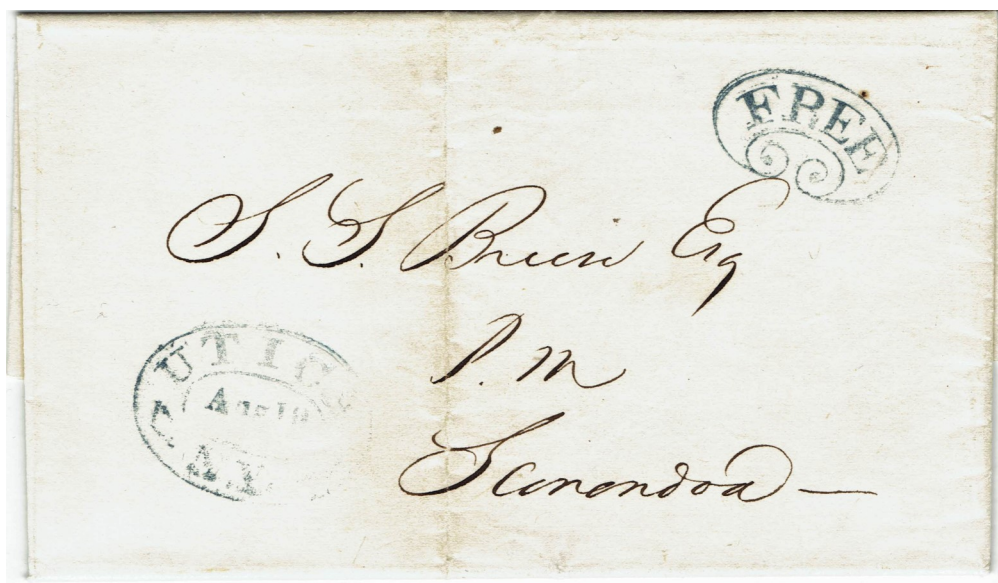 FREE
S. S. Breese Esq
P. M
Scanondoa
UTICA
N.Y.